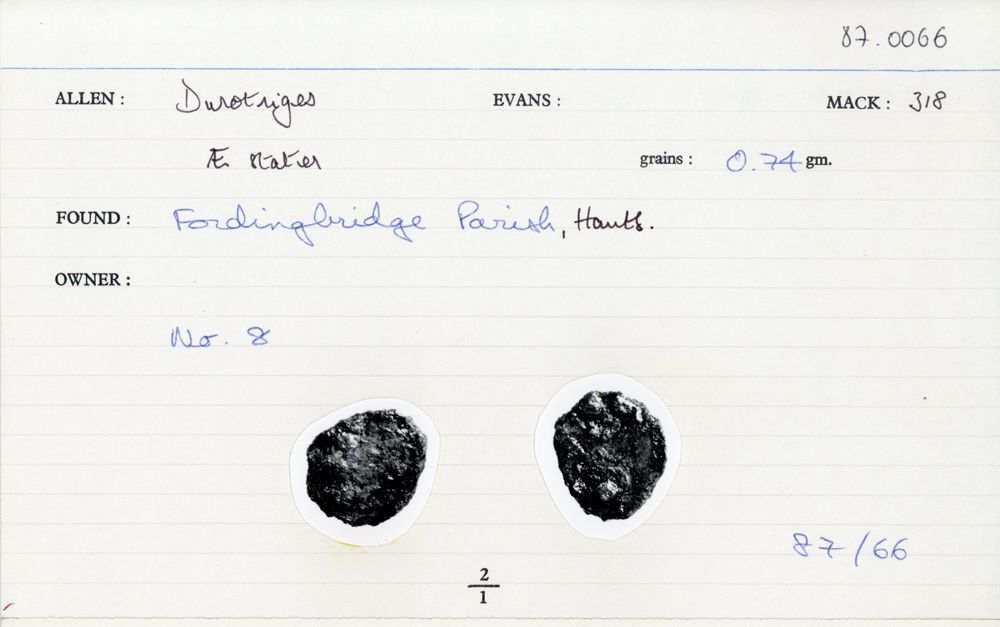 87.0066
ALLEN : Durotriges EVANS : MACK : 318
Æ stater grains : 0.74 gm.
FOUND : Fordingbridge Parish, Hants.
OWNER :
No. 8
87/66
2
1